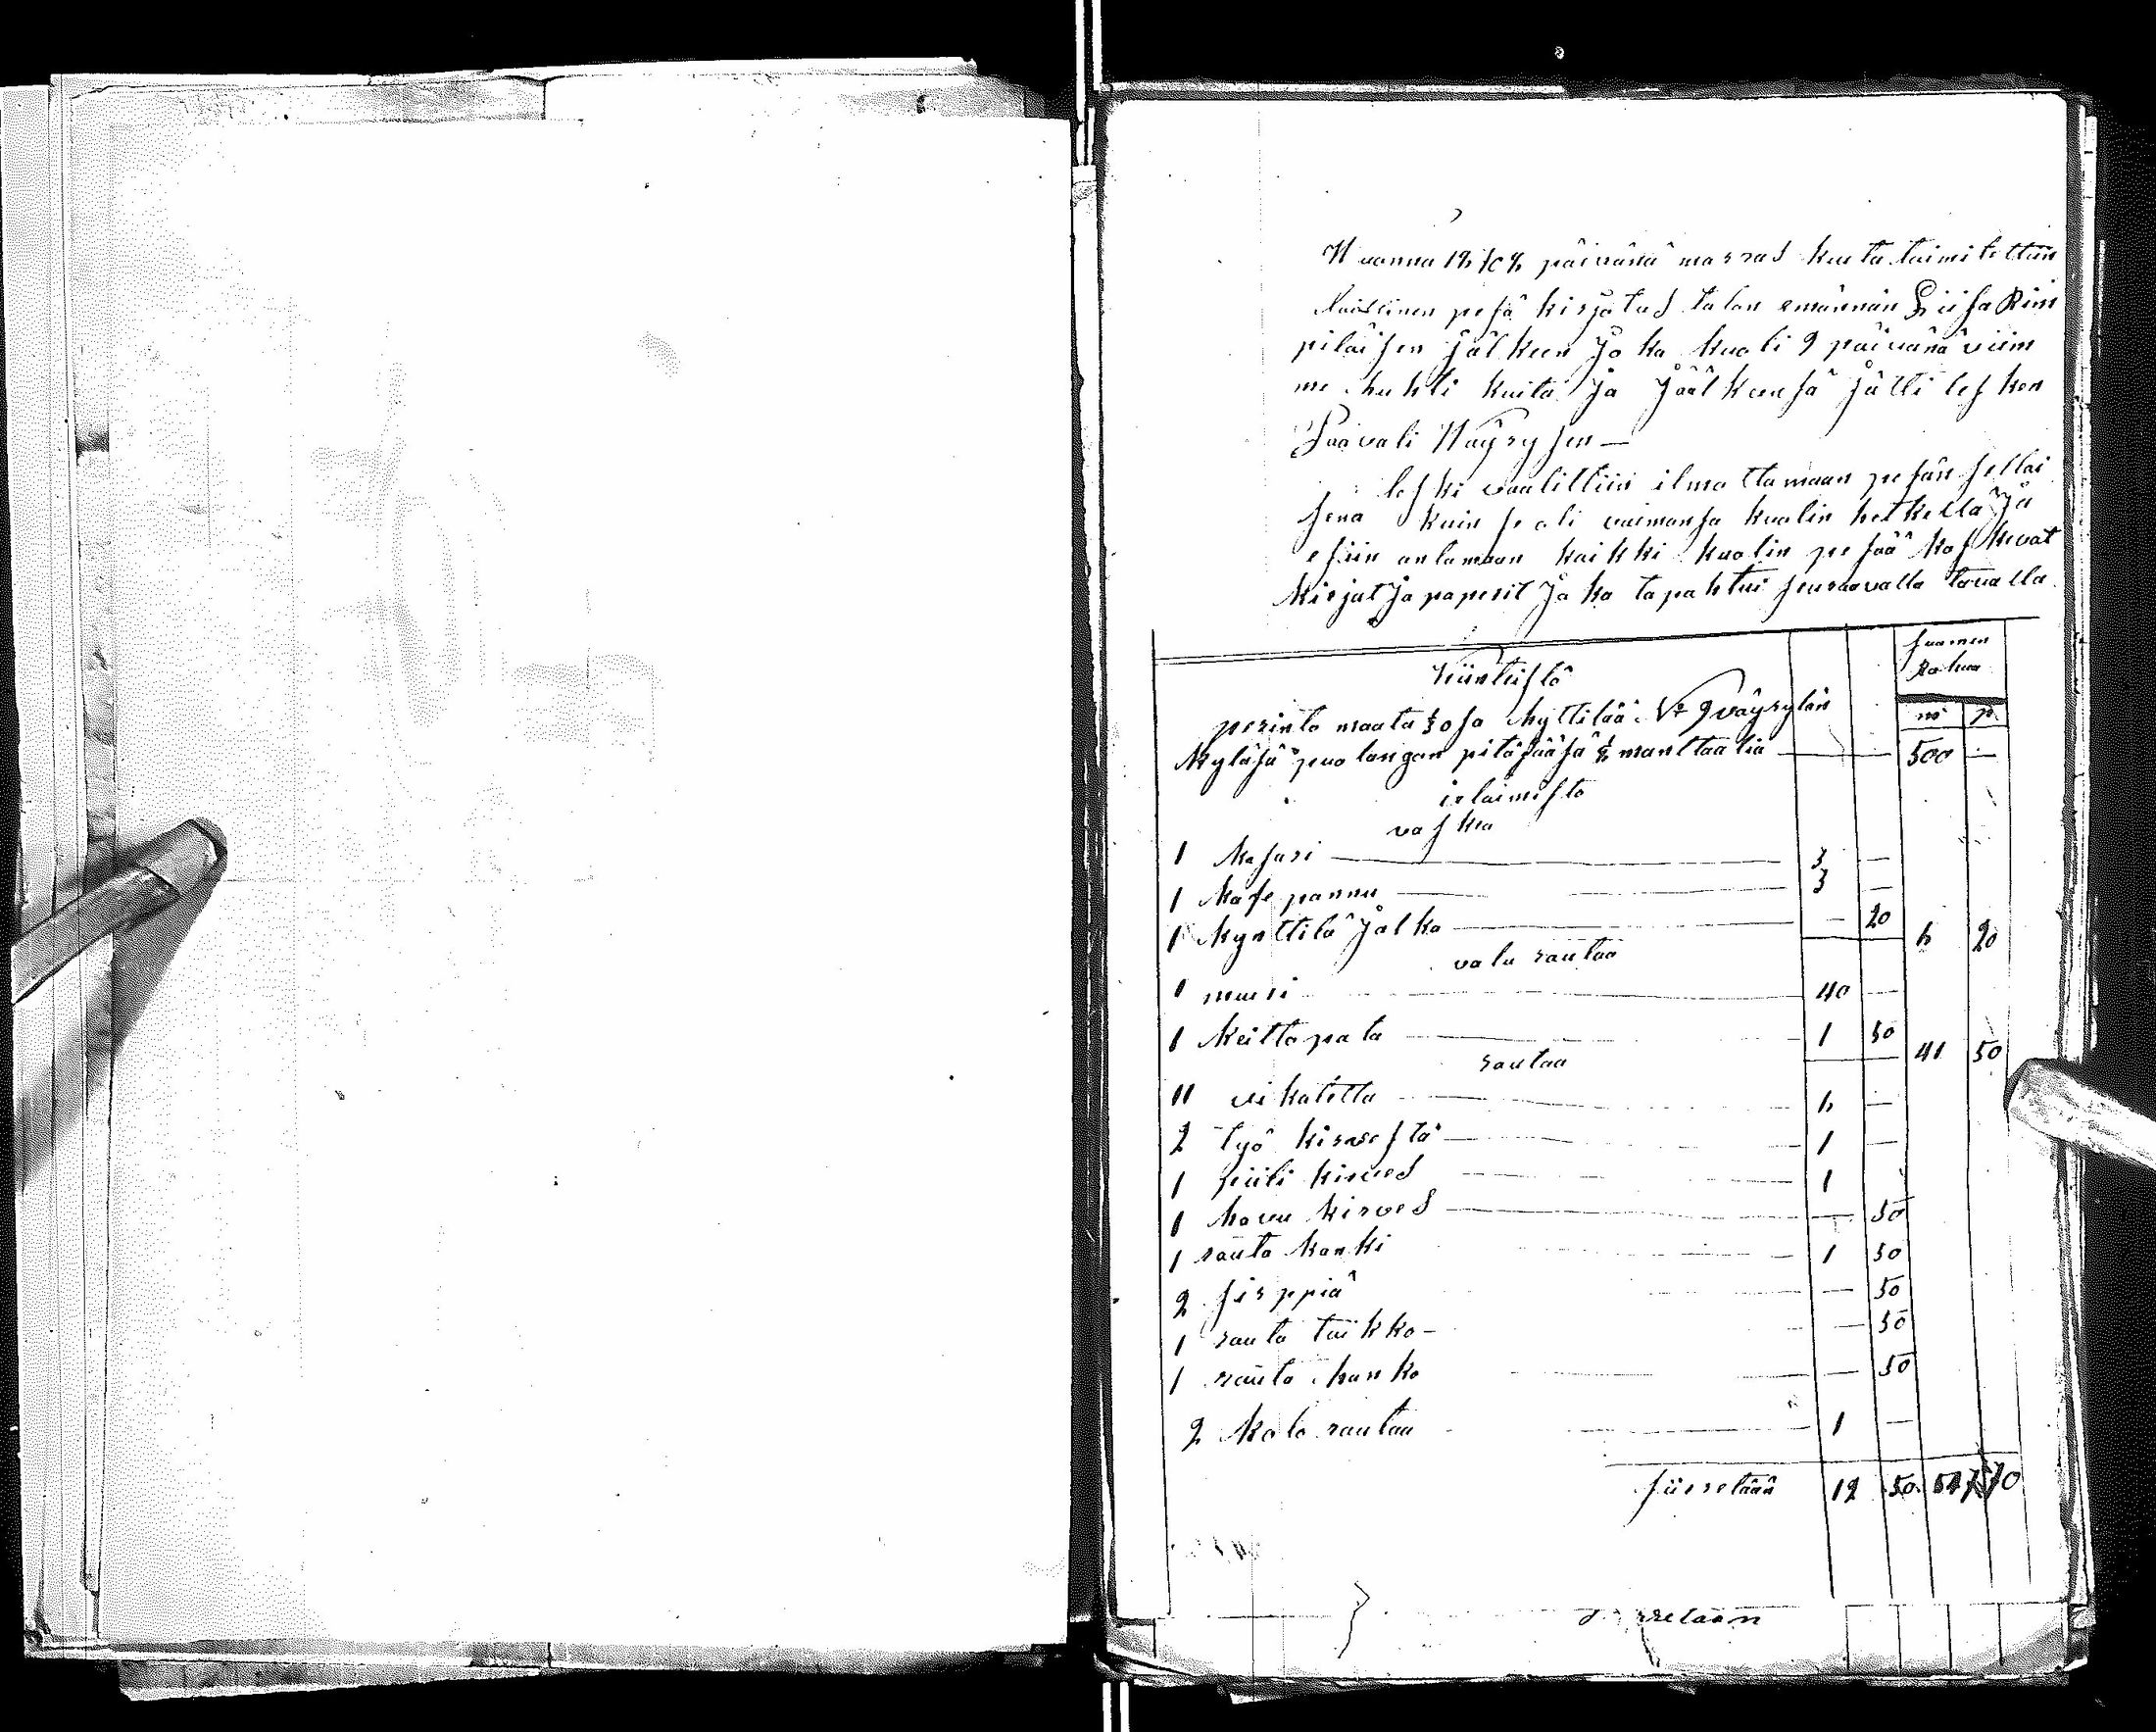 päivänä marras kuuta toimitettiin
pesä kirjotus talon emännän Liisa Rim
piläisen jälkeen jo ka kuoli 9 päivänä viim
me huhti kuita ja jäälkeensä jätti lesken
Paavali Wäyrysen —
leski vaalittiin ilmottamaan pesän sellai
sena kuin se oli vaimonsa kuolin hetkellä ja
esiin antamaan kaikki kuolin pesää koskevat
kirjat ja paperit jo ka tapahtui seuraavalla tavalla
suomen
Rahaa
kiinteistö
m p
perinto maata osa kyttilää No 9 väyrylän
kyläsä puolangan pitäjääsä manttaalia — 500 —
irtaimisto
vaskia
1 kasari — 3 —
1 kafe pannu — 3 —
1 kynttilä jalka — 20 6 20
valu rautaa
1 muuri 40 —
1 keittopata 1 50 41 50
rautaa
11 viikatetta 6 —
2 työ kirvestä 1 —
1 piili kirves 1
1 havu kirves — 50
1 rauta kanki 1 50
2 sirppiä — 50
1 rauta taikko — 50
1 rauta hanko — 50
2 kolo rautaa 1 —
siirretään 12 50 547 70